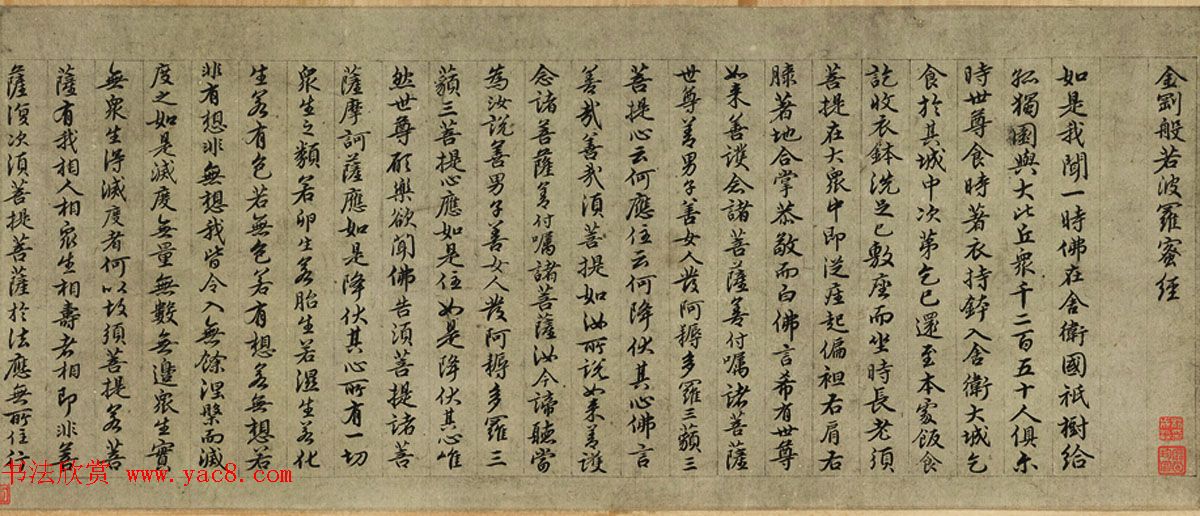 金剛般若波羅蜜經
如是我聞一時佛在舍衛國祇樹給
孤獨園與大比丘眾千二百五十人俱尒
時世尊食時著衣持鉢入舍衛大城乞
食於其城中次第乞已還至本處飯食
訖收衣鉢洗足已敷座而坐時長老須
菩提在大眾中即從座起偏袒右肩右
膝著地合掌恭敬而白佛言希有世尊
如来善護念諸菩薩善付嘱諸菩薩
世尊善男子善女人發阿耨多羅三藐三
菩提心云何應住云何降伏其心佛言
善哉善哉須菩提如汝所說如来善護
念諸菩薩善付嘱諸菩薩汝今諦聽當
為汝說善男子善女人發阿耨多羅三
藐三菩提心應如是住如是降伏其心唯
然世尊願樂欲聞佛告須菩提諸菩
薩摩訶薩應如是降伏其心所有一切
眾生之類若卵生若胎生若濕生若化
生若有色若無色若有想若無想若
非有想非無想我皆令入無餘涅槃而滅
度之如是滅度無量無數無邊眾生實
無眾生得滅度者何以故須菩提若菩
薩有我相人相眾生相壽者相即非菩
薩復次須菩提菩薩於法應無所住行
书法欣赏
www.yac8.com